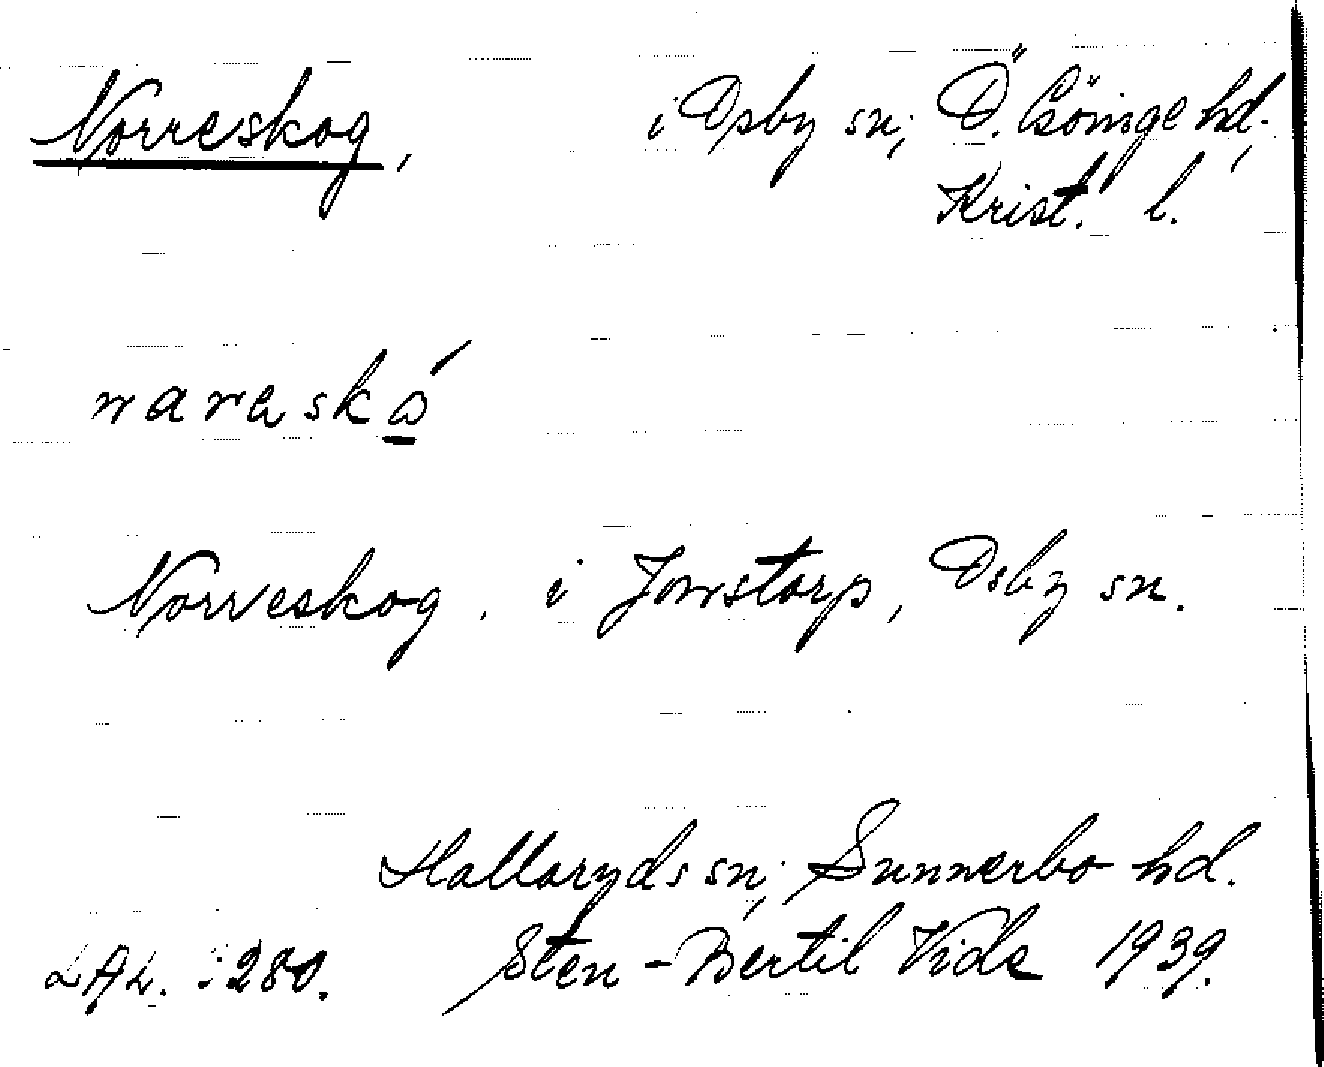 Norreskog, i Osby sn, Ö. Göinge hd,
Krist. l.
Norreskog. i Jonstorp, Osby sn.
Hallaryds sn, Sunnerbo hd.
LAL. : 280. Sten-Bertil Vide 1939.